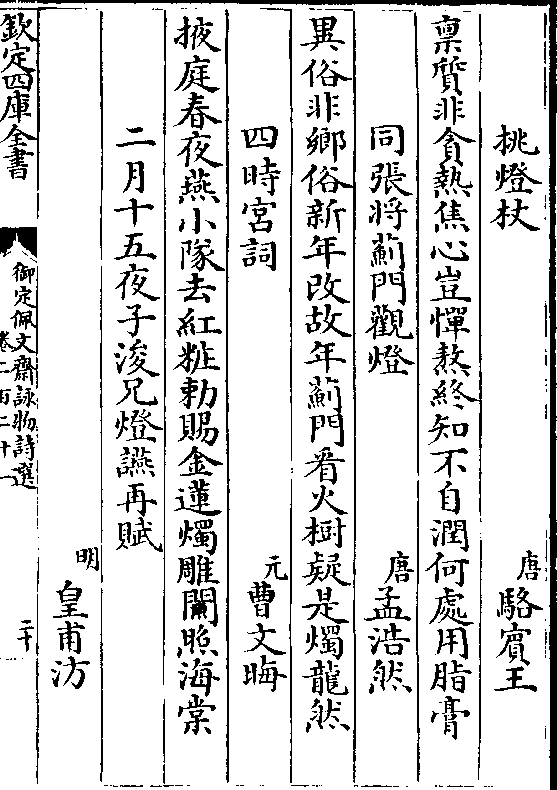 挑燈杖
唐駱賓王
稟質非貪熱焦心豈憚熬終知不自潤何處用脂膏
同張將薊門觀燈
唐孟浩然
異俗非鄉俗新年改故年薊門看火樹疑是燭龍然
四時宮詞
元曹文晦
掖庭春夜燕小隊去紅粧勅賜金蓮燭雕闌照海棠
二月十五夜子浚兄燈讌再賦
明皇甫汸
欽定四庫全書
御定佩文齋詠物詩選
卷二百二十一
二十